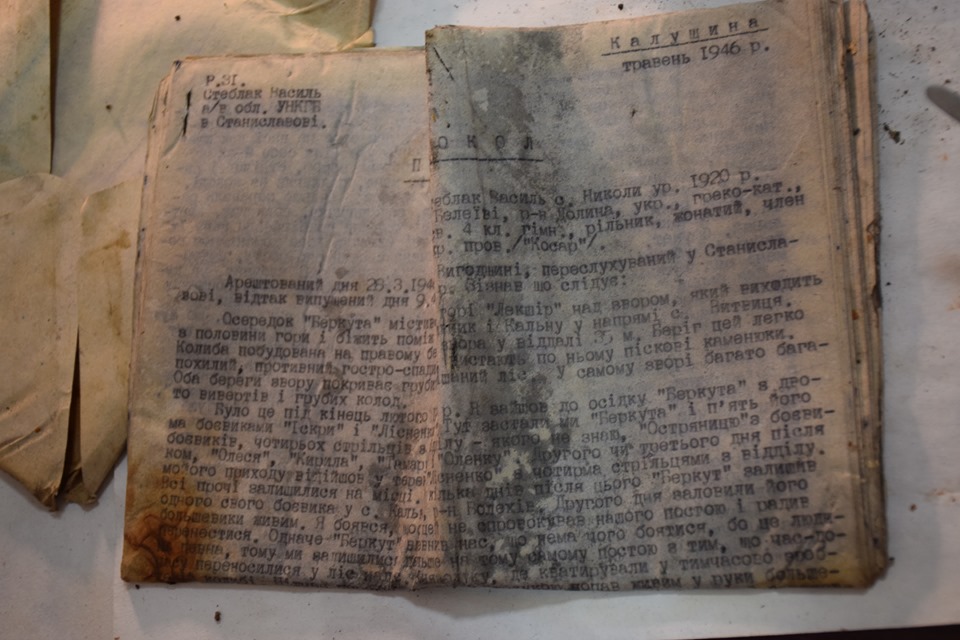 Калущина
травень 1946 р.
Р.31.
Стеблак Василь
а/в обл. УНКГБ
в Станиславові.
П ОКОЛ
еблак Василь с. Николи ур. 1920 р.
Белеїві, р-н Долина, укр., греко-кат.,
4 кл. гімн., рільник, жонатий, член
пров. /"Косар"/.
Арештований дня 28.3.194 Вигодщині, переслухуваний у Станисла-
вові, відтак випущений дня 9. р. Зізнав що слідує:
Осередок "Беркута" містив горі "Лекшір" над звором, який виходить
з половини гори і біжить помі ник і Кальну у напрямі с. Витвиця.
Колиба побудована на правому бе звора у віддалі 35 м. Беріг цей легко
похилий, противний гостро-спади вистають по ньому піскові каменюки.
Оба береги звору покриває груби ліс, у самому зворі багато бага-
то вивертів і грубих колод.
Було це під кінець лютого р. Я зайшов до осідку "Беркута" з дво-
ма боєвиками "Іскри" і "Лісненко Тут застали ми "Беркута" і п'ять його
боєвиків, чотирьох стрільців з ілу - якого не знаю, "Остряницю" з боєви-
ном, "Олеся", "Кирила", "Оленку". Другого чи третього дня після
мойого приходу відійшов у терен Лісненко чотирма стрільцями з відділу.
Всі прочі залишилися на місці. кілька днів після цього "Беркут" залишив
одного свого боєвика у с. Каль, н Болехів. Другого дня заловили його
большевики живим. Я боявся, не спровокував нашого постою і радив
перенестися. Одначе "Беркут" нас, що нема чого боятися, бо це люди-
певна, тому ми залишилися на тому самому постою з тим, що час-до-
часу переносилися у ліс де квартирували у тимчасово
попав живим у руки больше-